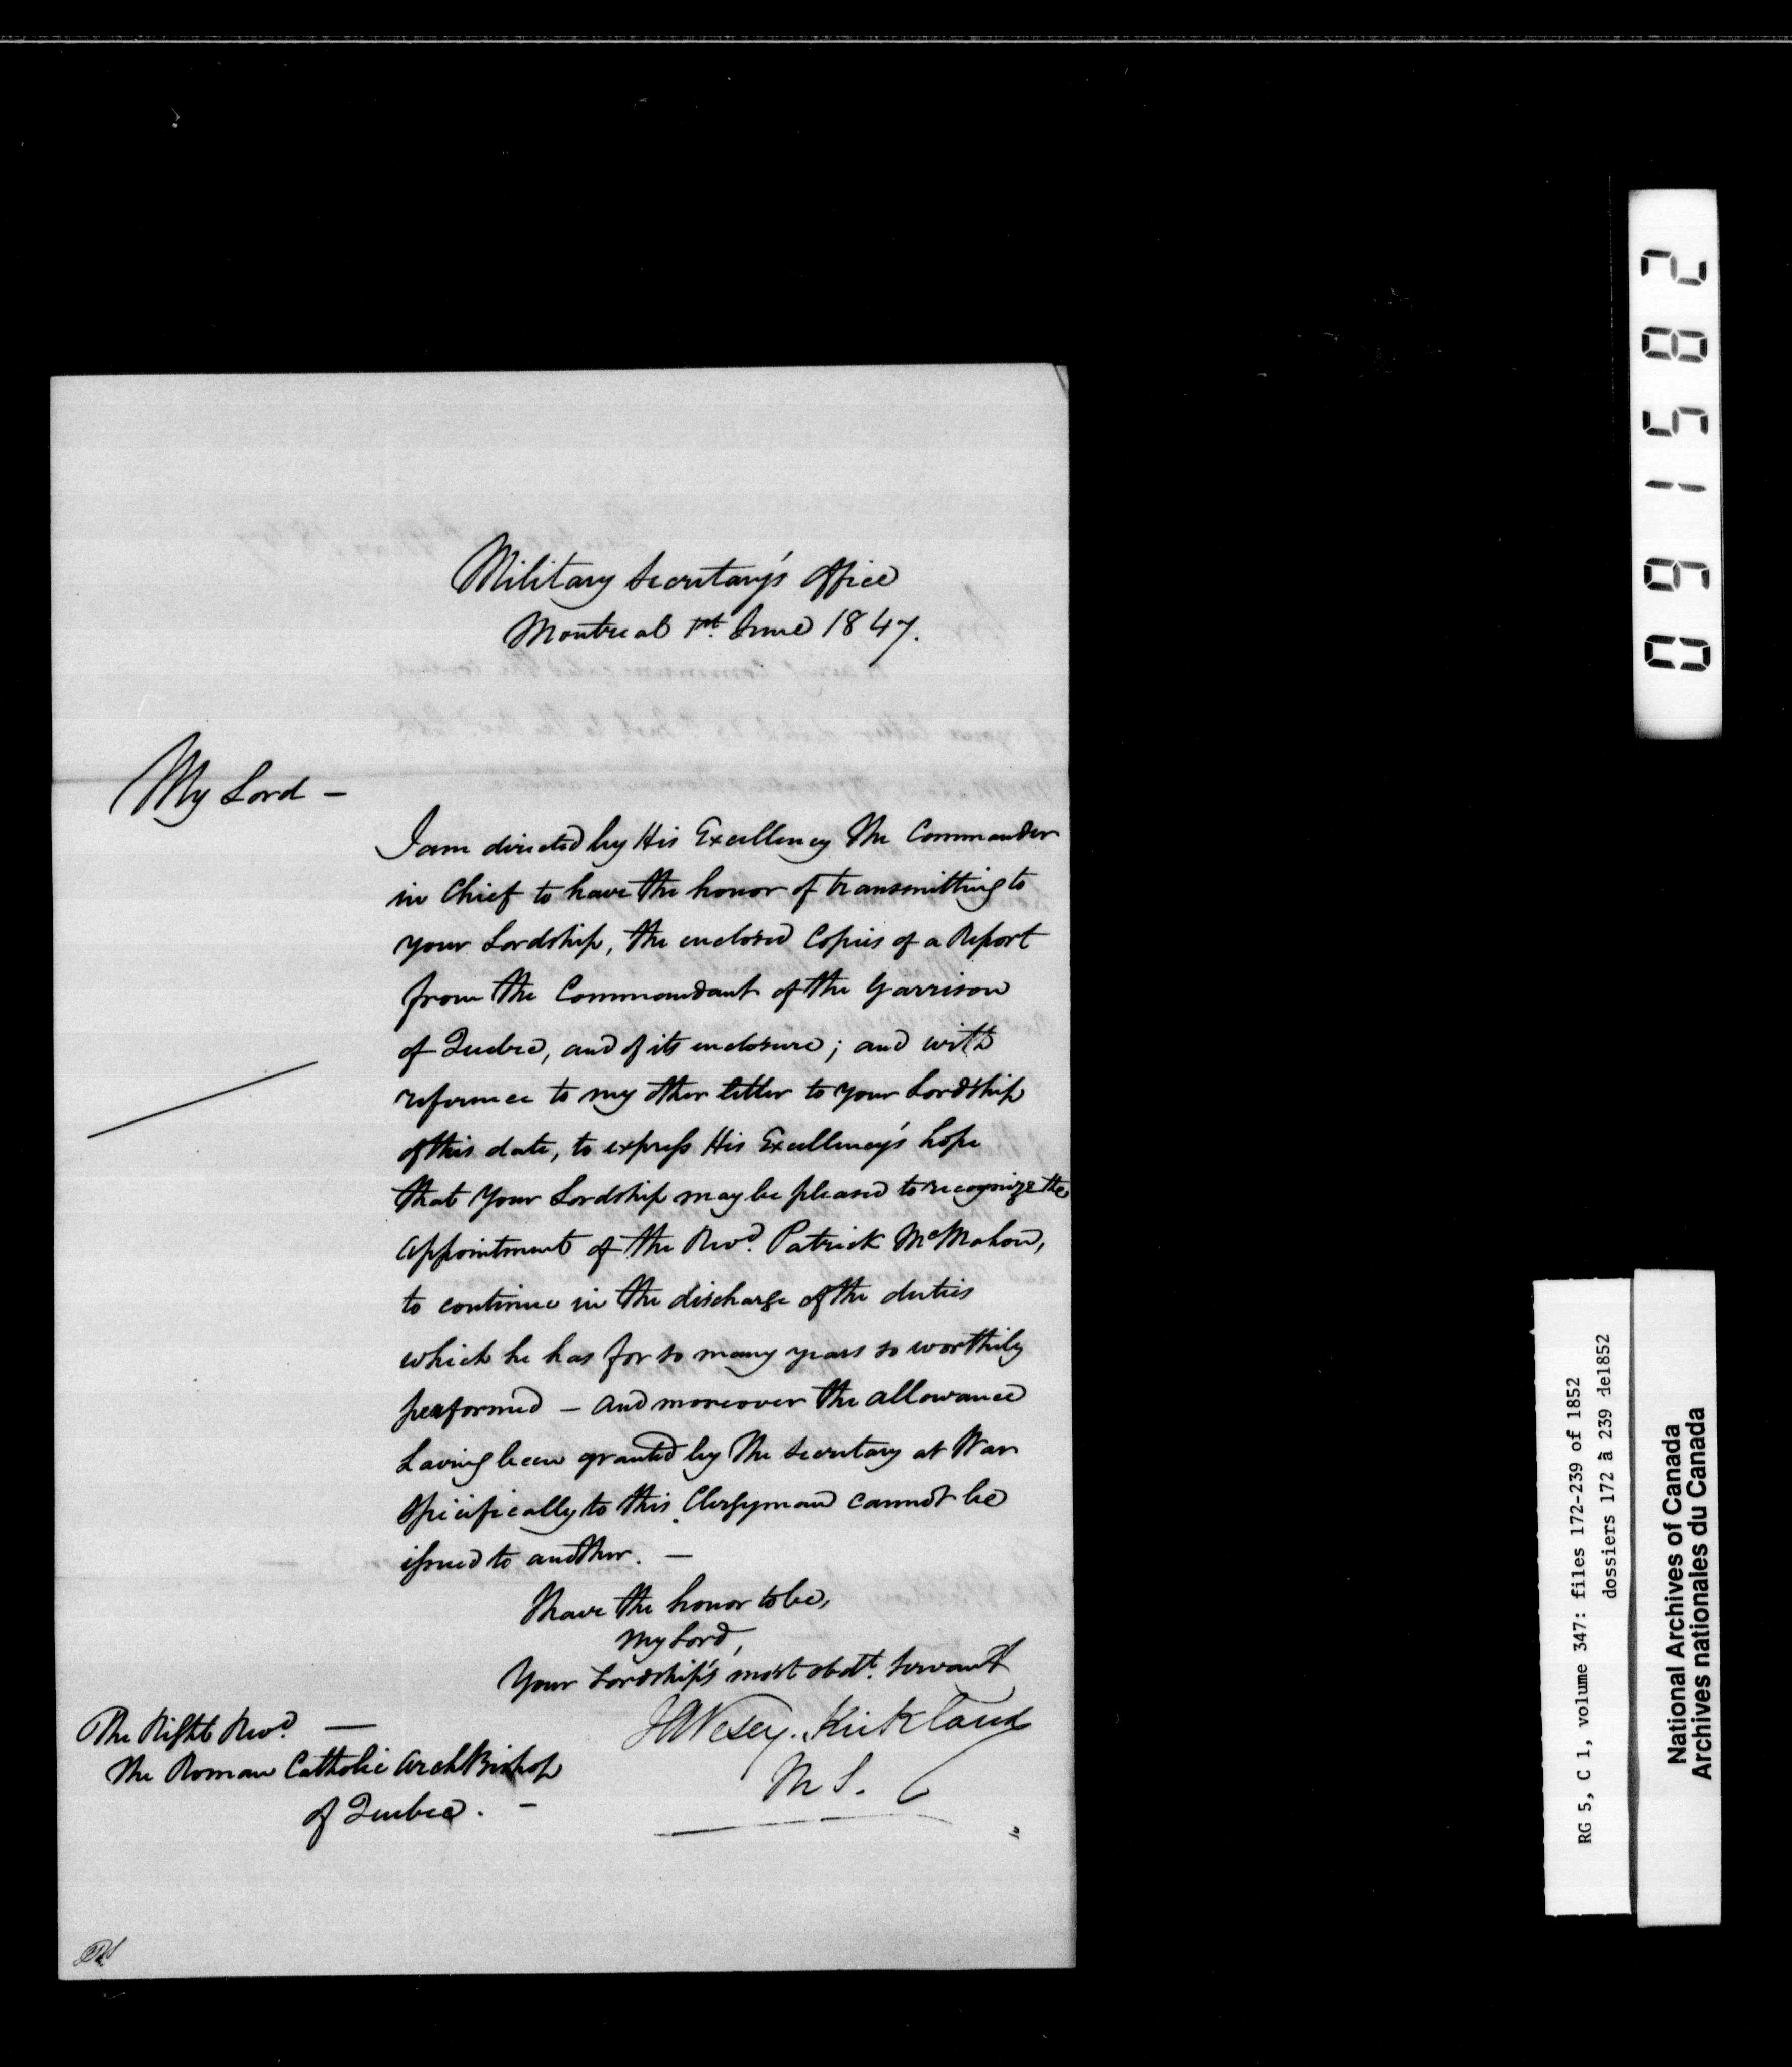 Military Secretary's Office
Montreal 1st June 1847.
My Lord —
I am directed by His Excellency The Commander
in Chief to have the honor of transmitting to
your Lordship, the enclosed Copies of a Report
from the Commandant of the Garrison
of Quebec, and of its enclosure; and with
reference to my other letter to your Lordship
of this date, to express His Excellency's hope
that Your Lordship may be pleased to recognize the
appointment of the Revd. Patrick McMahon,
to continue in the discharge of the duties
which he has for so many years so worthily
performed — and moreover the allowance
having been granted by The Secretary at War
specifically to this Clergyman cannot be
issued to another. —
I have the honor to be,
My Lord,
Your Lordship's most obedt. Servant
J A Vesey. Kirkland
M S.
The Right Revd. —
The Roman Catholic ArchBishop
of Quebec. —
091582
RG 5, C 1, volume 347: files 172-239 of 1852
dossiers 172 à 239 de1852
National Archives of Canada
Archives nationales du Canada